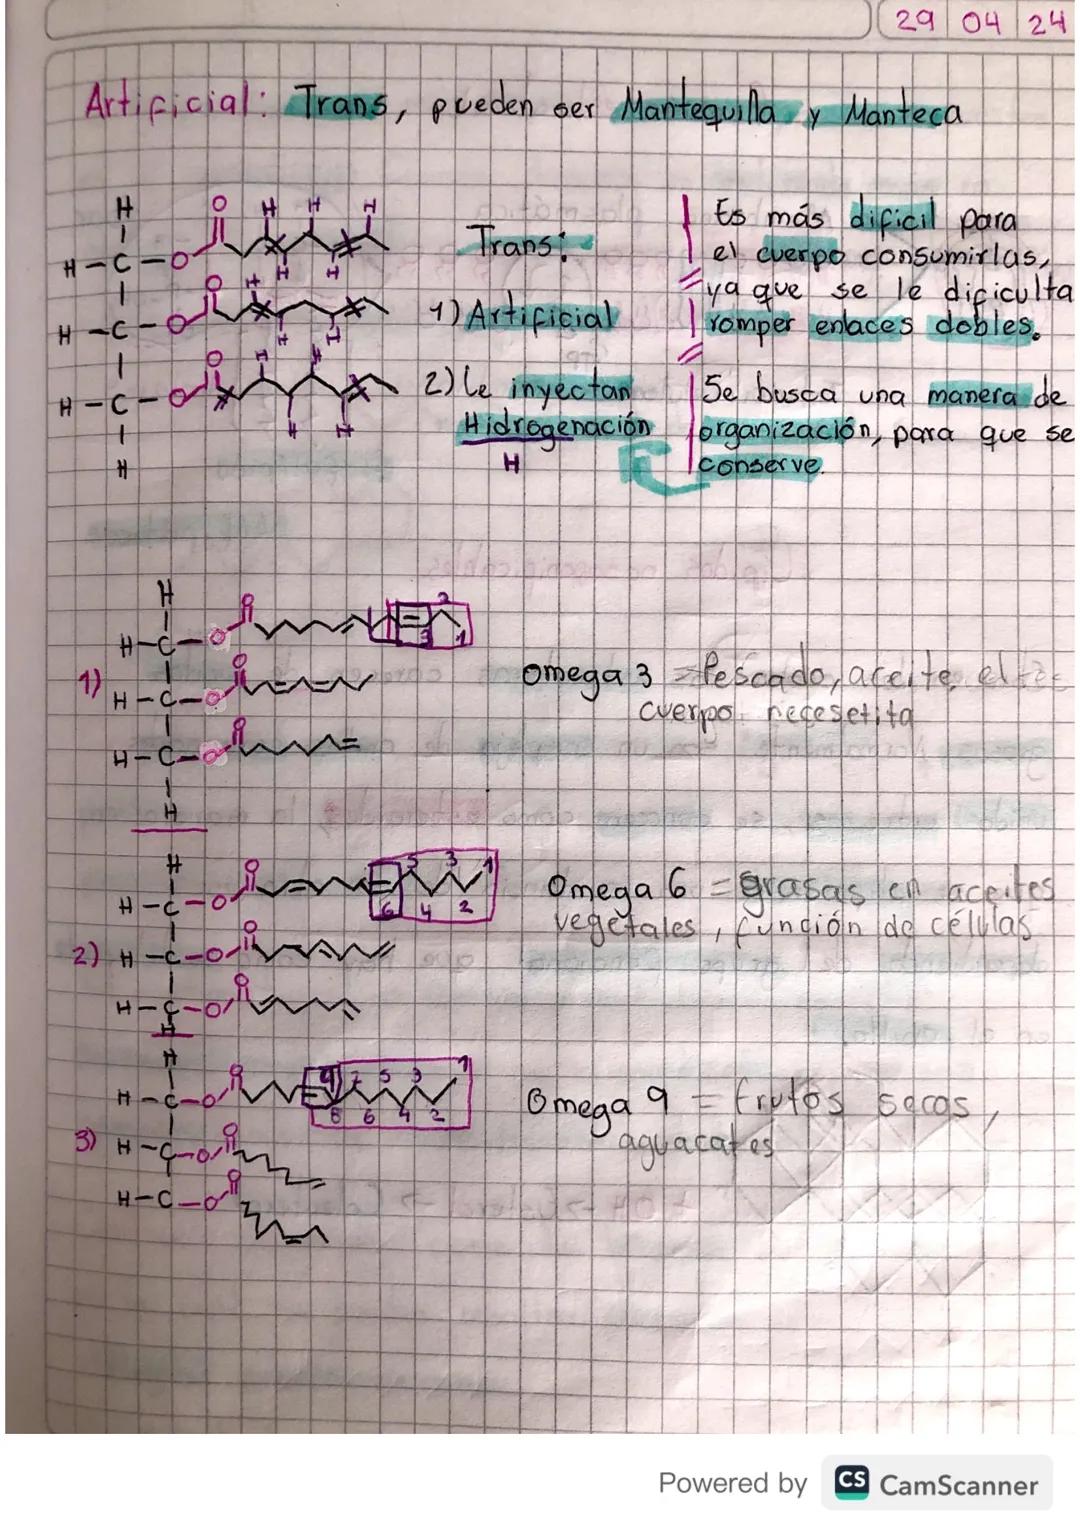 29 04 24
Artificial: Trans, pueden ser Mantequilla y Manteca
Trans:
1) Artificial
2) le inyectan
Hidrogenación
H
Es más dificil para
el cuerpo consumirlas,
ya que se le dificulta
romper enlaces dobles.
Se busca una manera de
organización, para que se
conserve.
H
H-C-O
H-C-O
H-C-O
H
O
O
O
H H H
H H
H
H H
H H
H H
1)
H
H-C-O
H-C-O
H-C-O
H
O
O
O
2
3 1
Omega 3 = Pescado, aceite, el
cuerpo necesetita
2)
H
H-C-O
H-C-O
H-C-O
H
O
O
O
5 3 1
6 4 2
Omega 6 = grasas en aceites
vegetales, función de células
3)
H
H-C-O
H-C-O
H-C-O
O
O
O
9 7 5 3 1
8 6 4 2
Omega 9 = frutos secos,
aguacates
Powered by CS CamScanner